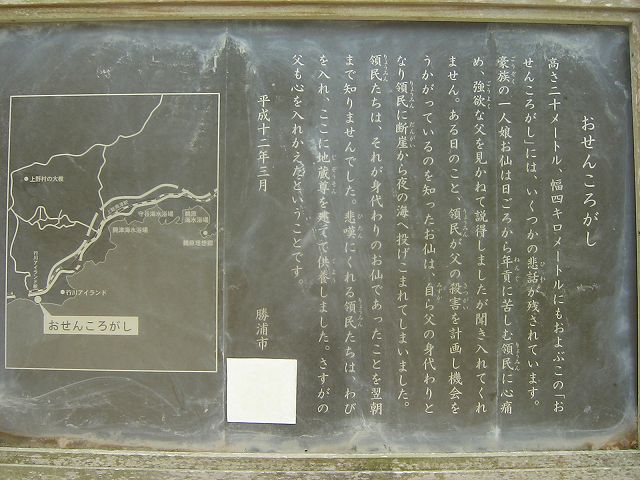 おせんころがし
高さ二十メートル、幅四キロメートルにもおよぶこの「お
せんころがし」には、いくつかの悲話が残されています。
豪族の一人娘お仙は日ごろから年貢に苦しむ領民に心痛
め、強欲な父を見かねて説得しましたが聞き入れてくれ
ません。ある日のこと、領民が父の殺害を計画し機会を
うかがっているのを知ったお仙は、自ら父の身代わりと
なり領民に断崖から夜の海へ投げこまれてしまいました。
領民たちは、それが身代わりのお仙であったことを翌朝
まで知りませんでした。悲嘆にくれる領民たちは、わび
を入れ、ここに地蔵尊を建てて供養しました。さすがの
父も心を入れかえたということです。
平成十二年三月
勝浦市
上野村の大椎
守谷海水浴場
鵜原海水浴場
興津海水浴場
鵜原理想郷
行川アイランド駅
行川アイランド
おせんころがし